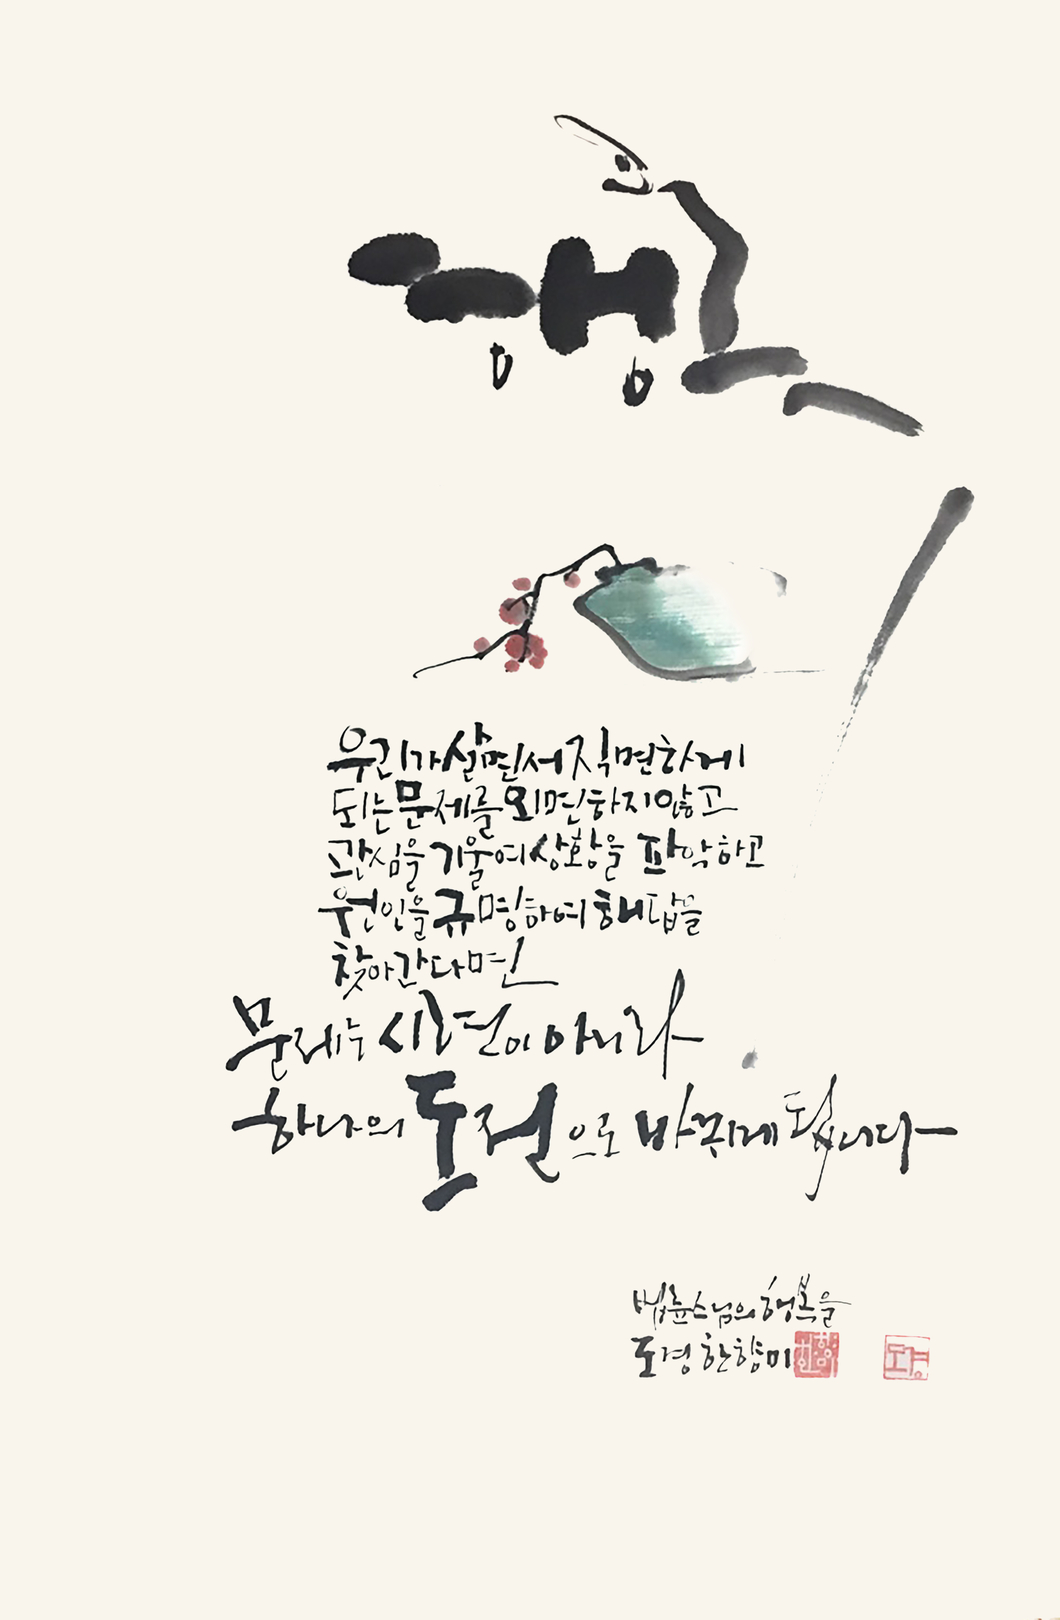 행복
우리가 살면서 직면하게
되는 문제를 외면하지 않고
관심을 기울여 상황을 파악하고
원인을 규명하여 해답을
찾아간다면
문제는 시련이 아니라
하나의 도전으로 바뀌게 됩니다
법륜스님의 행복을
도경 한향미